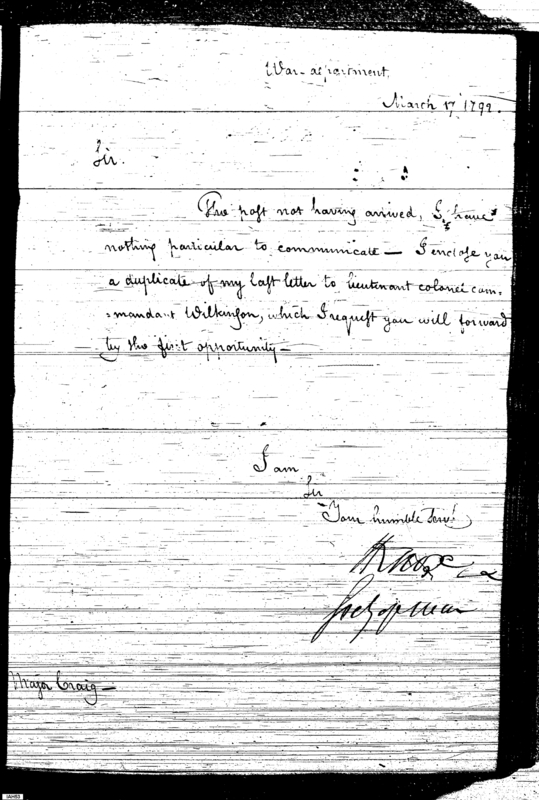 War department
March 17 1792.
Sir.
The post not having arrived, I have
nothing particular to communicate — I enclose you
a duplicate of my last letter to lieutenant colonel com=
=mandant Wilkinson, which I request you will forward
by the first opportunity —
I am
Sir
Your humble Servt
HKnox
Secy of War
Major Craig —